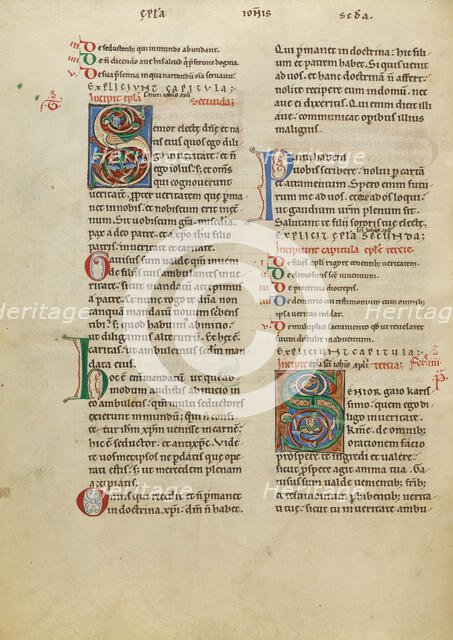 Ep̄la
ioħis
sc̄da.
iii De seductorib; qui in mundo abundant.
iiii De n̄ dicendo aut his salud ꝗ ꝑuerse dogma.
v. De sua p̄sentia in qua narrandū osa seruauit.
Explicivnt capitvla:
Incipit ep̄la
Secunda;
Senior electe dn̄e et na
tis eius quos ego dili
go in ueritate. et n̄
ego solus; s; et om̄s
qui cognouerunt
ueritatē. ꝓpter ueritatē que ꝑma
net in nobis. et nobiscū erit in et̄
num. Sit uobiscum gr̄a misc̄dia
pax a deo patre. et a xp̄o ihu filio
patris. in ueritate et caritate.
Gauisus sum ualde qm̄ inueni
de filiis tuis ambulantes in
ueritate. sicut mandatū accepim̄
a patre. Et nunc rogo te dn̄a. non
tanquam mandatū nouum scribens
tibi. s; quod habuim̄ ab initio.
ut diligam̄ alterutrum. Et hęc ē
caritas. ut ambulemus sc̄dm man
data eius.
Hoc est enim mandatū. ut quēadmo
dum audistis ab initio in
eo ambuletis. qm̄ multi seductores
exierunt in mundū. qui n̄ confi
tent̄ ihm xp̄m uenisse in carnē.
hic ē seductor. et antixp̄c. Vide
te uosmetipsos ne pdatis que ope
rati estis. s; ut mercedem plenam
accipiatis.
Omnis qui recedit et n̄ ꝑmanet
in doctrina xp̄i. dm̄ n̄ habet.
Qui ꝑmanet in doctrina. hic fili
um et patrem habet. Si quis uenit
ad uos. et hanc doctrinā n̄ affert.
nolite recipere eum in domū. nec
aue ei dixeritis. Qui enim dicit illi
aue. communicat operibus illius
malignis.
Plura habens
uobis scribere. nolui ꝑ cartā
et atramentum. Spero enim futu
rum me ad uos. et os ad os loqui. ut
gaudium urm̄ plenum sit.
Salutant te filii sororis tuę electę.
Explicit ep̄la secvnda;
Incipiunt capitula eple tercie.
i De filiis apl̄i rigore tenentib; ueritatem.
De diotrepis.
De demetrio testimoniū cum omnib;
ipsa ueritas reddat.
v De multiplici sacramento qd̄ ut reuelaret
suum distulit aduentum.
Explicivnt capitvla;
Incipit ep̄la sc̄i iohis apl̄i
tercia;
Senior gaio karis
simo. quem ego di
ligo in ueritate.
Kme. de omnib;
orationem facio
prospere te ingredi et ualere.
sicut ꝓspere agit anima tua. Ga
uisus sum ualde uenientib; frīb;
et testimonium ꝑhibentib; uerita
ti tuę. sicut tu in ueritate ambu
Heritage
Heritage
Heritage
Heritage
Images
Images